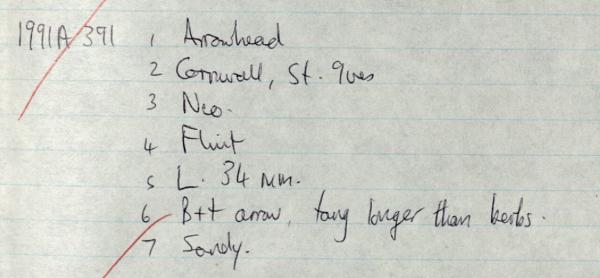 1991A 391 1 Arrowhead
2 Cornwall, St. Ives
3 Neo.
4 Flint
5 L. 34 mm.
6 B+t arrow, tang longer than berbs.
7 Sandy.